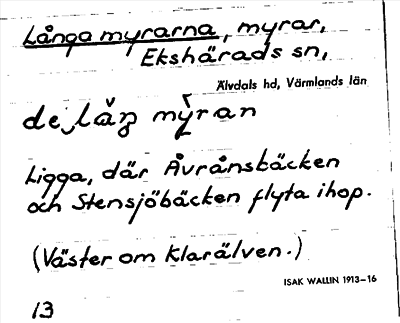 Långa myrarna, myrar,
Ekshärads sn,
Älvdals hd, Värmlands län
Ligga, där Åvrånsbäcken
och Stensjöbäcken flyta ihop.
(Väster om Klarälven.)
ISAK WALLIN 1913–16
13